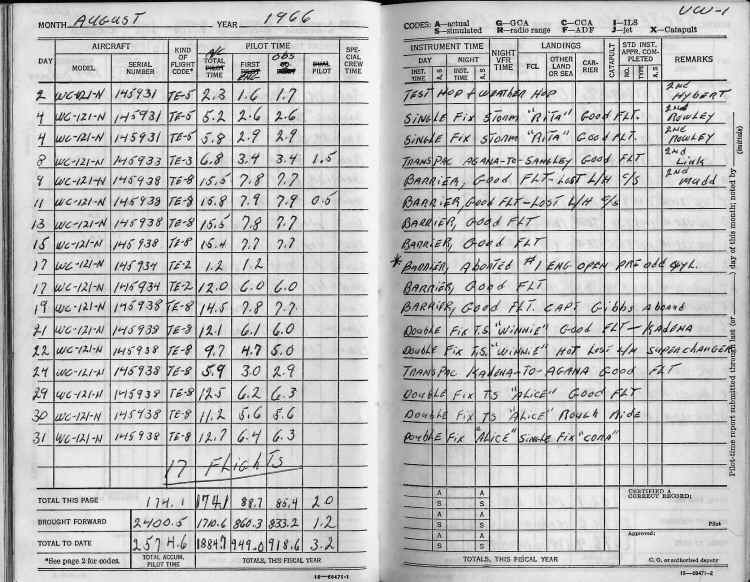 MONTH AUGUST YEAR 1966
AIRCRAFT
PILOT TIME
DAY
MODEL
SERIAL NUMBER
KIND OF FLIGHT CODE*
A/C
TOTAL PILOT TIME
FIRST PILOT
ENG
OBS
DUAL PILOT
SPECIAL CREW TIME
2 WC-121-N 145931 TE-5 2.3 1.6 1.7
4 WC-121-N 145931 TE-5 5.2 2.6 2.6
4 WC-121-N 145931 TE-5 5.8 2.9 2.9
8 WC-121-N 145933 TE-3 6.8 3.4 3.4 1.5
9 WC-121-N 145938 TE-8 15.5 7.8 7.7
11 WC-121-N 145938 TE-8 15.8 7.9 7.9 0.5
13 WC-121-N 145938 TE-8 15.5 7.8 7.7
15 WC-121-N 145938 TE-8 15.4 7.7 7.7
17 WC-121-N 145934 TE-2 1.2 1.2
17 WC-121-N 145934 TE-2 12.0 6.0 6.0
19 WC-121-N 145938 TE-8 14.5 7.8 7.7
21 WC-121-N 145938 TE-8 12.1 6.1 6.0
22 WC-121-N 145938 TE-8 9.7 4.7 5.0
24 WC-121-N 145938 TE-8 5.9 3.0 2.9
29 WC-121-N 145938 TE-8 12.5 6.2 6.3
30 WC-121-N 145938 TE-8 11.2 5.6 5.6
31 WC-121-N 145938 TE-8 12.7 6.4 6.3
17 FLIGHTS
TOTAL THIS PAGE 174.1 174.1 88.7 85.4 2.0
BROUGHT FORWARD 2400.5 1710.6 860.3 833.2 1.2
TOTAL TO DATE 2574.6 1884.7 949.0 918.6 3.2
*See page 2 for codes.
TOTAL ACCUM. PILOT TIME
TOTALS, THIS FISCAL YEAR
16—69471-1
VW-1
CODES: A—actual G—GCA C—CCA I—ILS
S—simulated R—radio range F—ADF J—jet X—Catapult
INSTRUMENT TIME
DAY
NIGHT
INST. TIME
A, S
INST. TIME
A, S
NIGHT VFR TIME
LANDINGS
FCL
OTHER LAND OR SEA
CARRIER
CATAPULT
STD INST. APPR. COMPLETED
NO.
TYPE
A, S
REMARKS
TEST HOP & WEATHER HOP 2nd HYBERT
SINGLE FIX STORM "RITA" GOOD FLT. 2nd ROWLEY
SINGLE FIX STORM "RITA" GOOD FLT. 2nd ROWLEY
TRANSPAC AGANA-TO-SANGLEY GOOD FLT 2nd Link
BARRIER, GOOD FLT-LOST L/H C/S 2nd Mudd
BARRIER, GOOD FLT-LOST L/H C/S
BARRIER, GOOD FLT
BARRIER, GOOD FLT
* BARRIER, ABORTED #1 ENG OPEN PRE odd cyl.
BARRIER, GOOD FLT
BARRIER, GOOD FLT. CAPT Gibbs Aboard
DOUBLE FIX T.S. "WINNIE" GOOD FLT - KADENA
DOUBLE FIX T.S. "WINNIE" HOT LOST L/H SUPERCHANGER
TRANSPAC KADENA-TO-AGANA GOOD FLT
DOUBLE FIX TS "ALICE" GOOD FLT
DOUBLE FIX TS "ALICE" ROUGH RIDE
DOUBLE FIX "ALICE" SINGLE FIX "CORA"
A A
S S
A A
S S
A A
S S
CERTIFIED A CORRECT RECORD:
Pilot
Approved:
C. O. or authorized deputy
TOTALS, THIS FISCAL YEAR
16—69471-2
Pilot-time report submitted through last (or ____) day of this month; noted by ____ (initials)